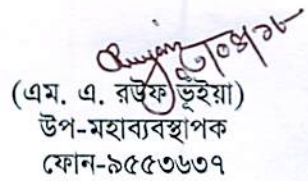 (এম. এ. রউফ ভূঁইয়া)
উপ-মহাব্যবস্থাপক
ফোন-৯৫৫৩৬৩৭